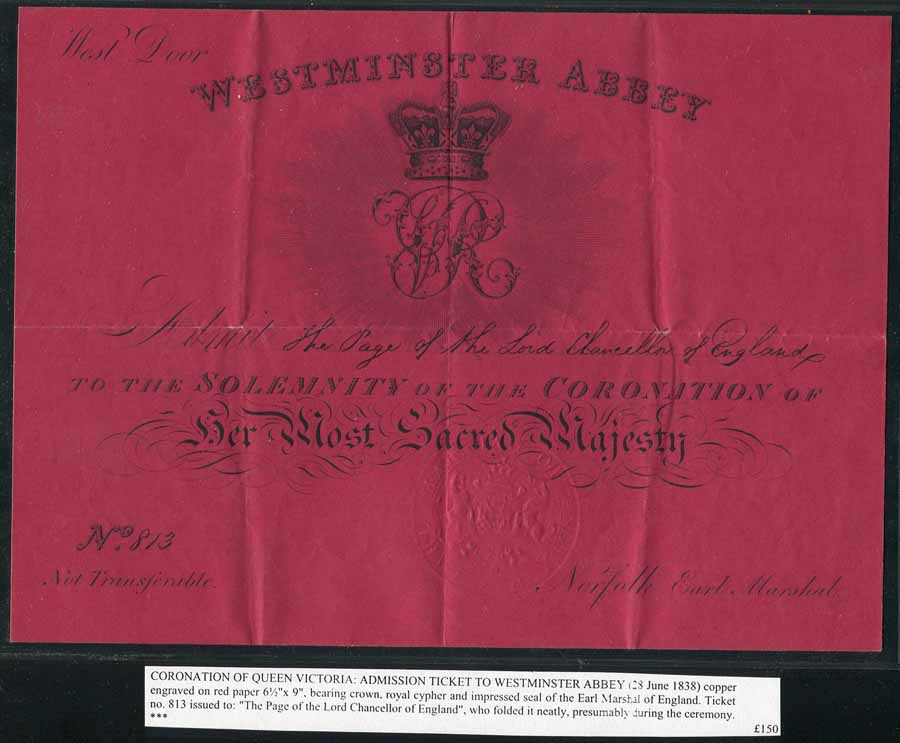 West Door
WESTMINSTER ABBEY
VR
Admit the Page of the Lord Chancellor of England
TO THE SOLEMNITY OF THE CORONATION OF
Her Most Sacred Majesty
No. 813
Not Transferable.
Norfolk Earl Marshal
CORONATION OF QUEEN VICTORIA: ADMISSION TICKET TO WESTMINSTER ABBEY (28 June 1838) copper
engraved on red paper 6½"x 9", bearing crown, royal cypher and impressed seal of the Earl Marshal of England. Ticket
no. 813 issued to: "The Page of the Lord Chancellor of England", who folded it neatly, presumably during the ceremony.
***
£150